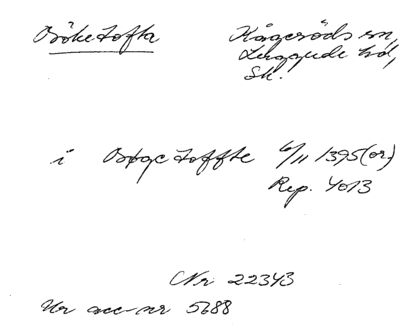 Böketofta
Kågeröds sn,
Luggude hd,
Sk.
i Bøgetoffte 6/11 1395 (or)
Rep. 4013
Nr 22343
Ur acc-nr 5688